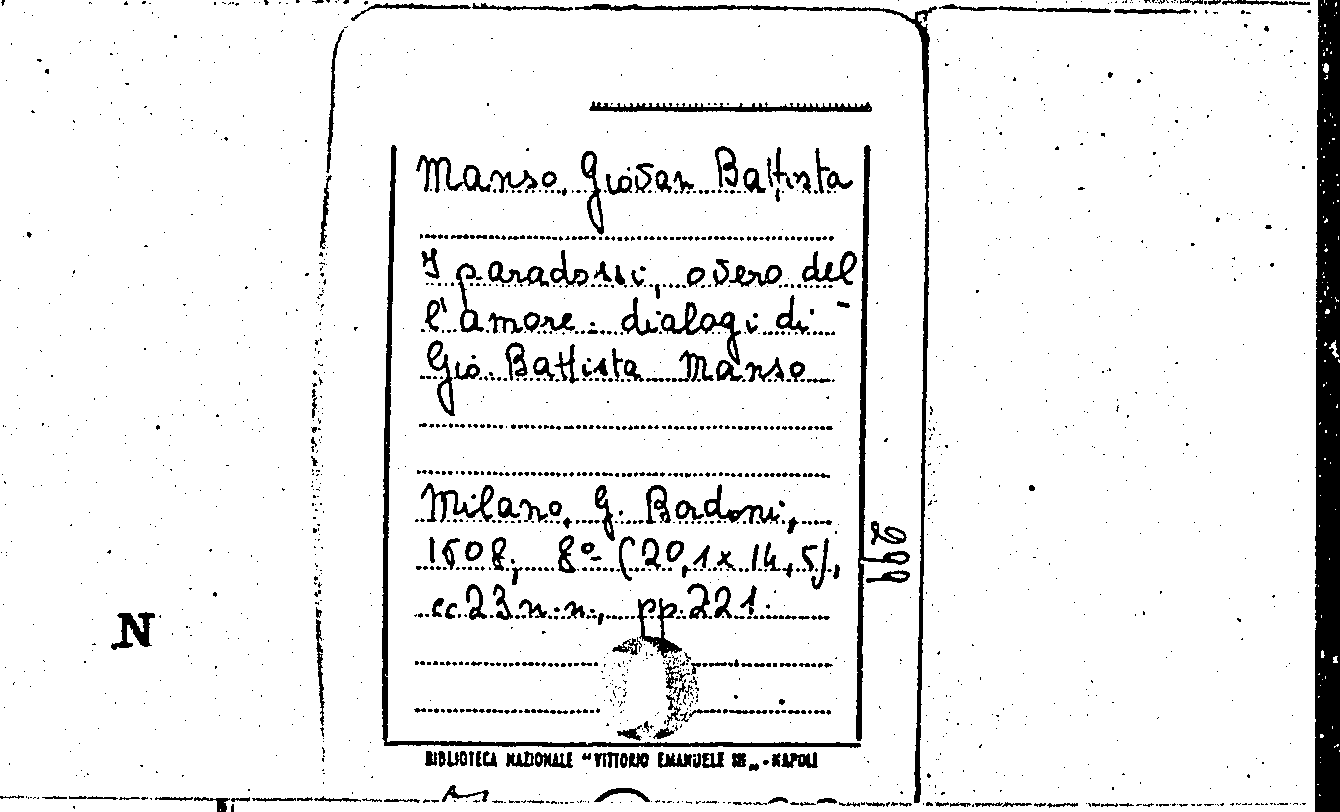 Manso, Giovan Battista
I paradossi, overo del
l'amore. dialogi di
Gio. Battista Manso
Milano, G. Bordoni,
1608, 8º (20,1x14,5),
cc.23 n.n., pp.221.
299
N
BIBLIOTECA NAZIONALE "VITTORIO EMANUELE III„ - NAPOLI